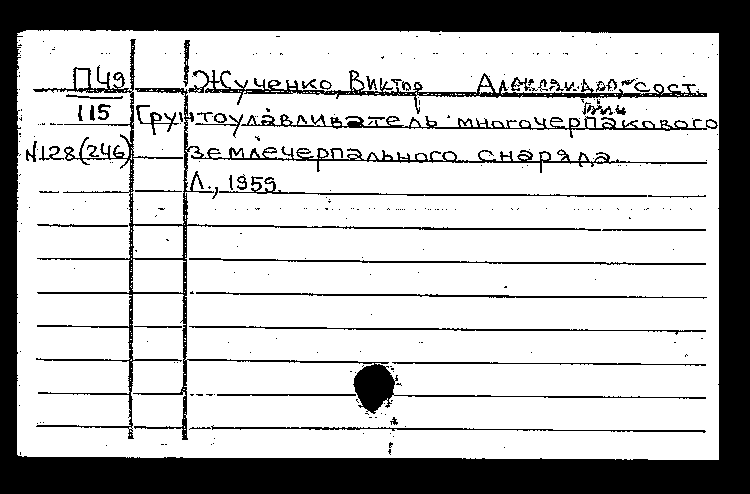 П49 Жученко, Виктор Александро- сост.
вич
115 Грунтоулавливатель многочерпакового
№128(246) землечерпального снаряда.
Л., 1959.